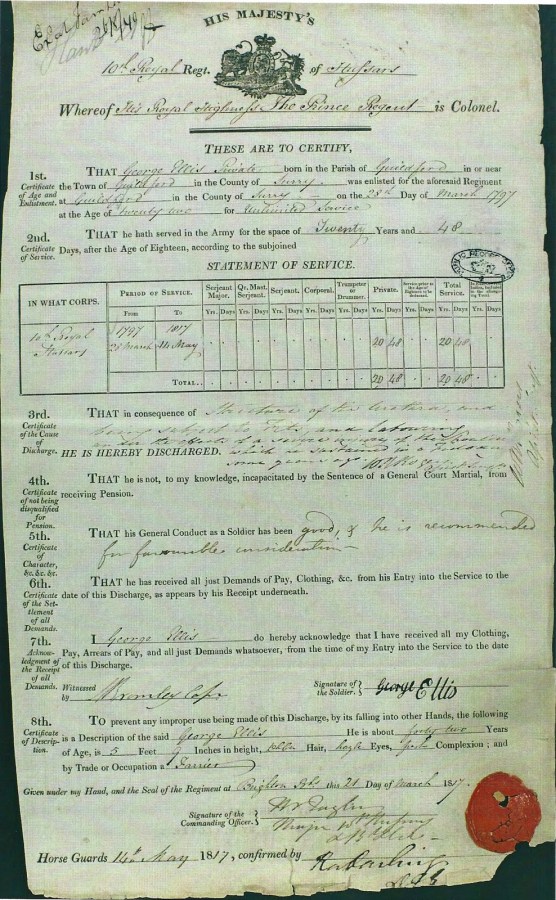 26/8/40
HIS MAJESTY'S
10th Royal Regt. of Hussars
Whereof His Royal Highness The Prince Regent is Colonel.
THESE ARE TO CERTIFY,
1st. Certificate of Age and Enlistment.
THAT George Ellis Private born in the Parish of Guildford in or near
the Town of Guildford in the County of Surry was enlisted for the aforesaid Regiment
at Guildford in the County of Surry on the 28th Day of March 1797
at the Age of twenty two for Unlimited Service
2nd. Certificate of Service.
THAT he hath served in the Army for the space of Twenty Years and 48
Days, after the Age of Eighteen, according to the subjoined
STATEMENT OF SERVICE.
IN WHAT CORPS. PERIOD OF SERVICE. Serjeant Major. Qr. Mast. Serjeant. Serjeant. Corporal. Trumpeter or Drummer. Private. Total Service.
From To Yrs. Days Yrs. Days Yrs. Days Yrs. Days Yrs. Days Yrs. Days Yrs. Days Yrs. Days Yrs. Days
10th Royal 1797 1817
Hussars 28 March 14 May 20 48 20 48
TOTAL.. 20 48 20 48
3rd. Certificate of the Cause of Discharge.
THAT in consequence of Stricture of the Urethra, and
being subject to Fits, and labouring
under the effects of a severe injury of the
HE IS HEREBY DISCHARGED. which he sustained in
some years ago
4th. Certificate of not being disqualified for Pension.
THAT he is not, to my knowledge, incapacitated by the Sentence of a General Court Martial, from
receiving Pension.
5th. Certificate of Character, &c. &c. &c.
THAT his General Conduct as a Soldier has been good, & he is recommended
for favourable consideration
6th. Certificate of the Settlement of all Demands.
THAT he has received all just Demands of Pay, Clothing, &c. from his Entry into the Service to the
date of this Discharge, as appears by his Receipt underneath.
7th. Acknowledgment of the Receipt of all Demands.
I George Ellis do hereby acknowledge that I have received all my Clothing,
Pay, Arrears of Pay, and all just Demands whatsoever, from the time of my Entry into the Service to the date
of this Discharge.
Witnessed by
Signature of the Soldier. George Ellis
8th. Certificate of Description.
TO prevent any improper use being made of this Discharge, by its falling into other Hands, the following
is a Description of the said George Ellis He is about forty two Years
of Age, is 5 Feet 9 Inches in height, Hair, Eyes, Complexion; and
by Trade or Occupation a Farrier
Given under my Hand, and the Seal of the Regiment at Brighton this 21 Day of March 1817.
Signature of the Commanding Officer.
Horse Guards 14th May 1817, confirmed by